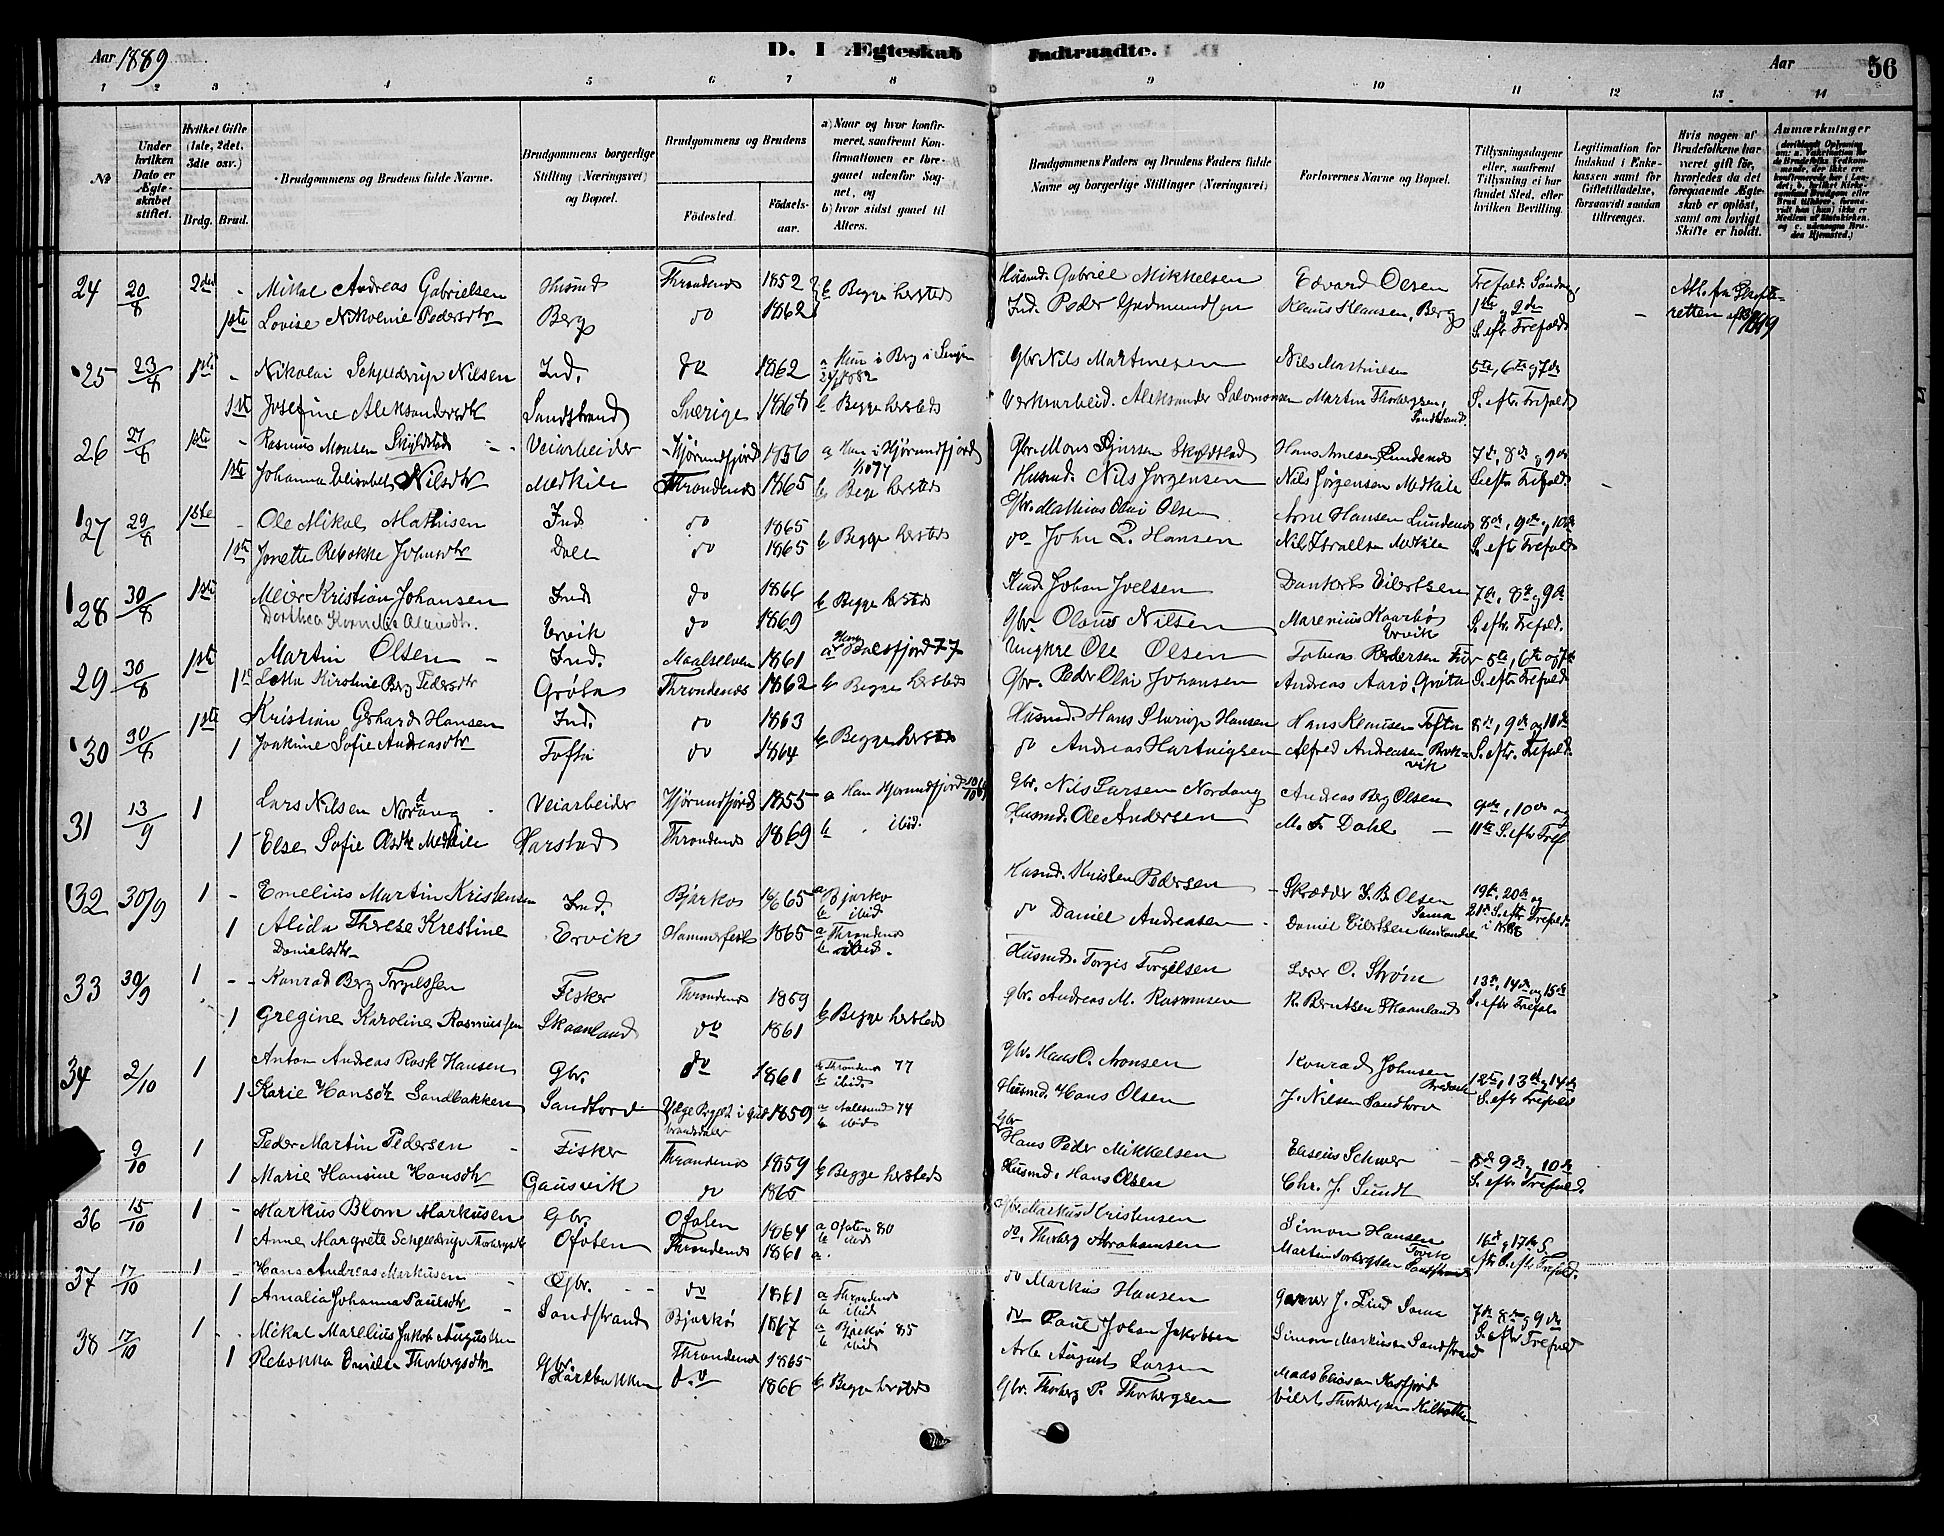 Aar 1889
D. I Ægteskab Indtraadte.
Aar
56
1 2 3 4 5 6 7 8 9 10 11 12 13 14
№
Under hvilken Dato er Ægteskabet stiftet.
Hvilket Gifte (1ste, 2det, 3die osv.)
Brdg. Brud.
Brudgommens og Brudens fulde Navne.
Brudgommens borgerlige Stilling (Næringsvei) og Bopæl.
Brudgommens og Brudens
Födested.
Födselsaar.
a) Naar og hvor konfirmeret, saafremt Konfirmationen er foregaaet udenfor Sognet, og
b) hvor sidst gaaet til Alters.
Brudgommens Faders og Brudens Faders fulde Navne og borgerlige Stillinger (Næringsvei)
Forlovernes Navne og Bopæl.
Tillysningsdagene eller, saafremt Tillysning ei har fundet Sted, efter hvilken Bevilling.
Legitimation for Indskud i Enkekassen samt for Giftetilladelse, forsaavidt saadan tiltrænges.
Hvis nogen af Brudefolkene har været gift før, hvorledes da det foregaaende Ægteskab er oplöst, samt om lovligt Skifte er holdt.
Anmærkninger
24 20/8 2det - Mikal Andreas Gabrielsen Husmd Throndenes 1852 b Begge hersteds Husmd. Gabriel Mikkelsen Edvard Olsen Trefold. Söndag
1ste Lovise Nikoline Pedersdtr Berg do 1862 Ind. Peder Gudmundsen Klaus Hansen, Berg 1ste og 2den S. eftr Trefold
25 23/8 1ste - Nikolai Schjelderup Nilsen Ind. do 1862 a Hun i Berg i Senjen Gbr Nils Martinesen Nils Martinesen 5te, 6te og 7de
1ste Josefine Aleksandersdtr Sandstrand Sverige 1868 b Begge hersteds Verksarbeid. Aleksander Salomonsen Martin Thorbergsen, Sandstrand. S. eftr. Trefold
26 27/8 1ste - Rasmus Monsen Skyldstad Veiarbeider Hjørundfjord 1856 a Han i Hjørundfjord Gbr. Mons Skyldstad Hans Arnesen Lundenes 7de, 8de og 9de
1ste Johanna Elisabet Nilsdtr Medkile Throndenes 1865 b Begge hersteds Husmd. Nils Jørgensen Nils Jørgensen Medkile S. eftr Trefold.
27 29/8 1ste - Ole Mikal Mathisen Ind do 1865 b Begge hersteds Gbr. Mathias Olai Olsen Arne Hansen Lundenes 8de, 9de og 10de
1ste Jonette Rebekke Johnsdtr Dale do 1865 do John L. Hansen Medkile S. eft Trefold
28 30/8 1ste Meier Kristian Johansen Ind do 1866 b Begge hersteds Johan Joelsen Dankert Eilertsen 7de, 8de og 9de
Dorthea Kornelia Olausdtr. Ervik do 1869 Gbr. Olaus Nilsen Marenius Kaarbø Ervik S. eftr Trefold.
29 30/8 1ste Martin Olsen - Ind. Maalselven 1861 a Balsfjord 77 Ungkre Ole Olsen Tobias Pedersen 5te, 6te og 7de
1ste Lotta Kirstine Berg Pedersdtr Grøta Throndenes 1862 b Begge hersteds Gbr. Peder Olai Johansen Andreas Aarø, Grøta S. eftr Trefold
30 30/8 1ste Kristian Gerhard Hansen Ind. do 1863 b Begge hersteds Husmd. Hans Sturup Hansen Hans Klausen Tofta 8de, 9de og 10de
1 Joakime Sofie Andreasdtr Tofta do 1864 do Andreas Hartvigsen Alfred Andreasen S. eftr. Trefold.
31 13/9 1 Lars Nilsen Nordang - Veiarbeider Hjørundfjord 1855 a Han Hjørundfjord Gbr. Nils Larsen Nordang Andreas Berg Olsen 9de, 10de og
1 Else Sofie Olsdtr Medkile Harstad Throndenes 1869 b ibid. Husmd. Ole Andersen M. F. Dahl - 11te S. eftr Tref
32 30/9 1 - Emelius Martin Kristensen Ind. Bjarkø 1865 a Bjarkø b ibid Husmd. Kristen Pedersen Skrædder J. B. Olsen Sama 19de, 20de og
1 Alida Therese Krestine Danielsdtr Ervik Hammerfest 1865 a Throndenes b ibid. do Daniel Andreasen Daniel Eilertsen 21de S. eftr Trefold. i 1888
33 30/9 1 - Konrad Berg Torgilssen Fisker Throndenes 1859 b Begge hersteds Husmd. Torgis Torgilsen Lærer O. Strøm 13de, 14de og 15de
1 Gregine Karoline Rasmussen Skaanland do 1861 Gbr. Andreas M. Rasmusen R. Berntsen Skaanland S. eftr Trefold
34 2/10 1 Anton Andreas Rosk Hansen Gbr. do 1861 a Throndenes 77 b ibid Gbr. Hans O. Aronsen Konrad Johnsen 12te, 13de og 14de
1 Karie Hansdtr Sandbakken Sandtorv 1859 a Aalesund 74 b ibid Husmd. Hans Olsen J. Nilsen Sandtorv S. eftr Trefold
9/10 1 Peder Martin Pedersen - Fisker Throndenes 1859 b Begge hersteds Gbr Hans Peder Mikkelsen Elseius Schwer 8de 9de og 10de
1 Marie Hansine Hansdtr Gausvik do 1865 Husmd. Hans Olsen Chr. J. Sundt S. eftr Trefold.
36 15/10 1 - Markus Blom Markusen Gbr. Ofoten 1864 a Ofoten 80 b ibid Gbr. Markus Kristensen Simon Hansen 16de og 17de S
1 Anne Margrete Schjelderup Thorbergsdtr Ofoten Throndenes 1861 a do. Thorberg Abrahamsen Martin Torbergsen Sandstrand eftr S. eftr Trefold.
37 17/10 1 - Hans Andreas Markusen Gbr. do 1861 a Throndenes b ibid do Markus Hansen J. Lind Sama 7de 8de og 9de
1 Amalia Johanna Paulsdtr Sandstrand Bjarkø 1867 a Bjarkø 85 b ibid do Paul Johan Jakobsen Simon Markusen Sandstrand S. eftr Trefold
38 17/10 1 - Mikal Marelius Jakob Augustsen Gbr. Throndenes 1865 August Larsen Mads Eliasen Kasfjord
1 Rebekka Emilie Thorbergsdtr do 1866 b Begge hersteds Gbr. Thorberg P. Thorbergsen Eilert Thorbergsen Kilbotten